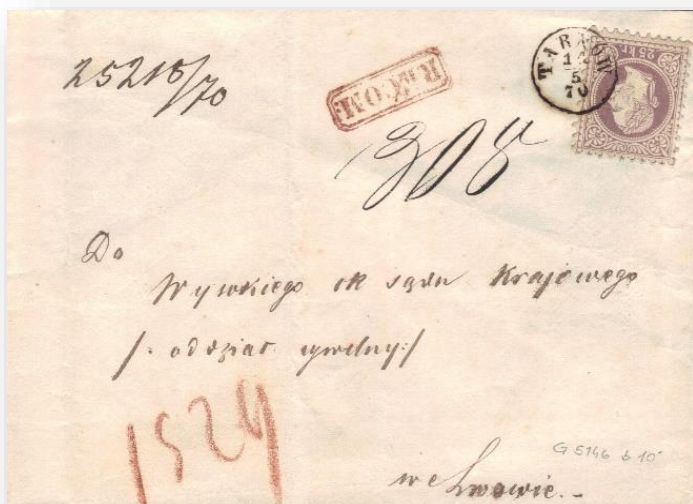 25218/70
RECOM:
TARNÓW
14
5
70
25 kr.
308
Do
Wysokiego ck sądu Krajowego
/: oddział cywilny:/
1529
we Lwowie.-
G 5146 b 10'